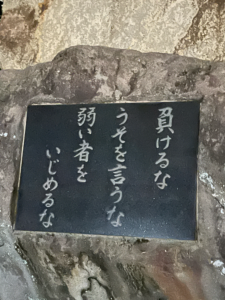 負けるな
うそを言うな
弱い者を
いじめるな